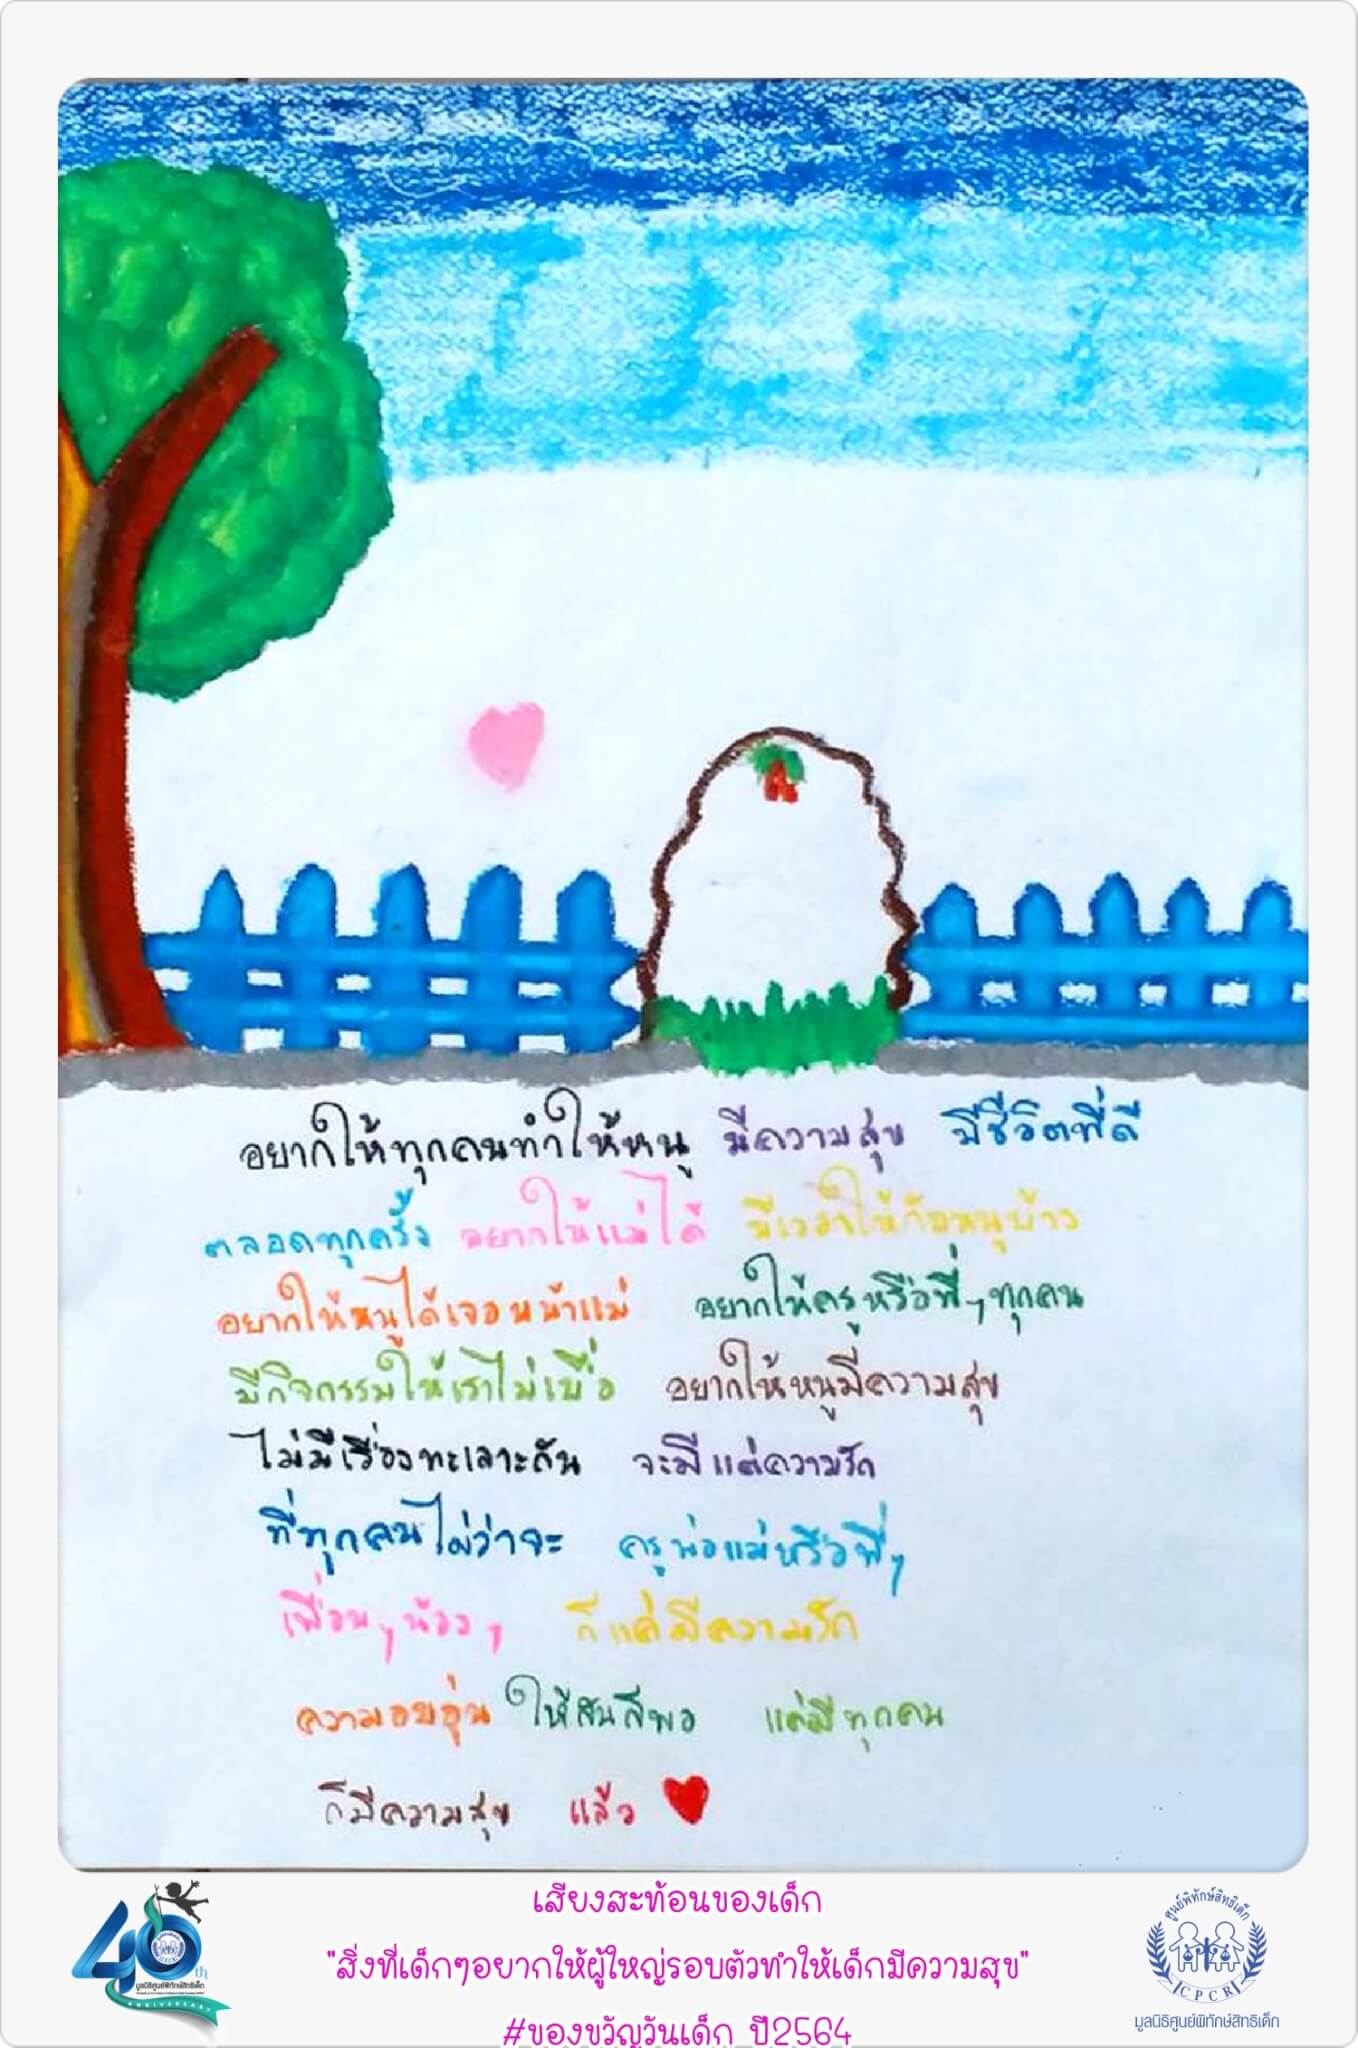 อยากให้ทุกคนทำให้หนู มีความสุข มีชีวิตที่ดี
ตลอดทุกครั้ง อยากให้แม่ได้ มีเวลาให้กับหนูบ้าง
อยากให้หนูได้เจอหน้าแม่ อยากให้ครูหรือพี่ๆทุกคน
มีกิจกรรมให้เราไม่เบื่อ อยากให้หนูมีความสุข
ไม่มีเรื่องทะเลาะกัน จะมีแต่ความรัก
ที่ทุกคนไม่ว่าจะ ครูพ่อแม่หรือพี่ๆ
เพื่อนๆน้องๆ ก็แค่มีความรัก
ความอบอุ่น ให้ฉันก็พอ แค่มีทุกคน
ก็มีความสุข แล้ว
เสียงสะท้อนของเด็ก
"สิ่งที่เด็กๆอยากให้ผู้ใหญ่รอบตัวทำให้เด็กมีความสุข"
#ของขวัญวันเด็ก ปี2564
40th
มูลนิธิศูนย์พิทักษ์สิทธิเด็ก
ANNIVERSARY
ศูนย์พิทักษ์สิทธิเด็ก
CPCR
มูลนิธิศูนย์พิทักษ์สิทธิเด็ก